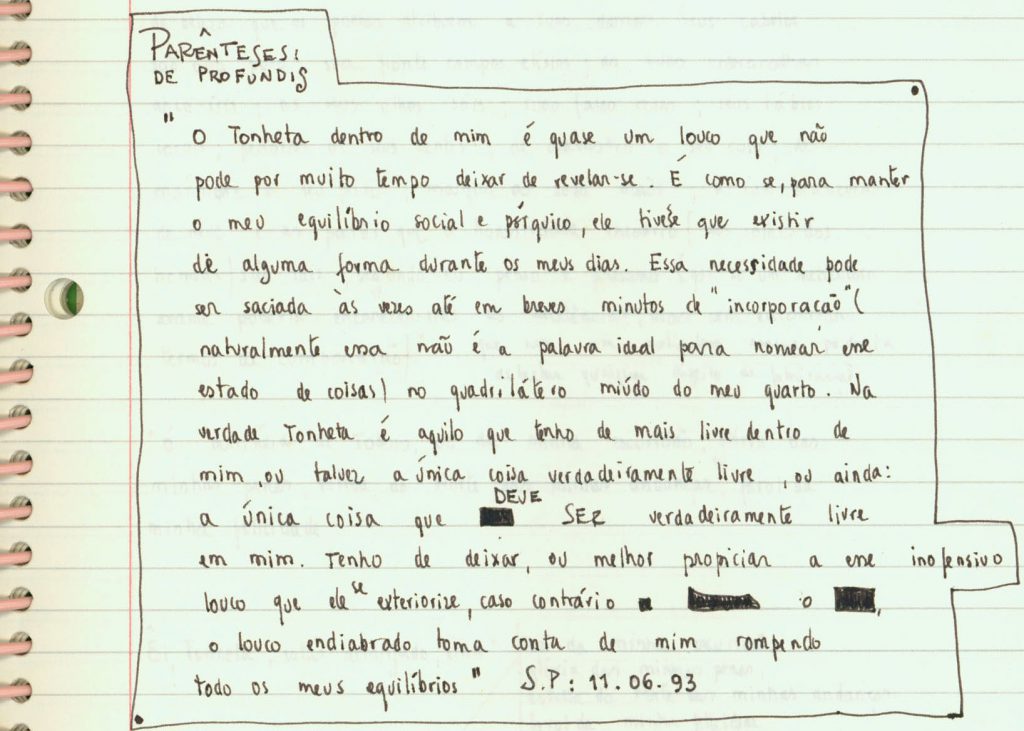 PARÊNTESES:
DE PROFUNDIS
" O Tonheta dentro de mim é quase um louco que não
pode por muito tempo deixar de revelar-se. É como se, para manter
o meu equilíbrio social e psíquico, ele tivesse que existir
de alguma forma durante os meus dias. Essa necessidade pode
ser saciada às vezes até em breves minutos de "incorporação" (
naturalmente essa não é a palavra ideal para nomear esse
estado de coisas) no quadrilátero miúdo do meu quarto. Na
verdade Tonheta é aquilo que tenho de mais livre dentro de
mim, ou talvez a única coisa verdadeiramente livre, ou ainda:
DEVE
a única coisa que SER verdadeiramente livre
em mim. Tenho de deixar, ou melhor propiciar a esse inofensivo
louco que ele se exteriorize, caso contrário o ,
o louco endiabrado toma conta de mim rompendo
todo os meus equilíbrios" S.P: 11.06.93